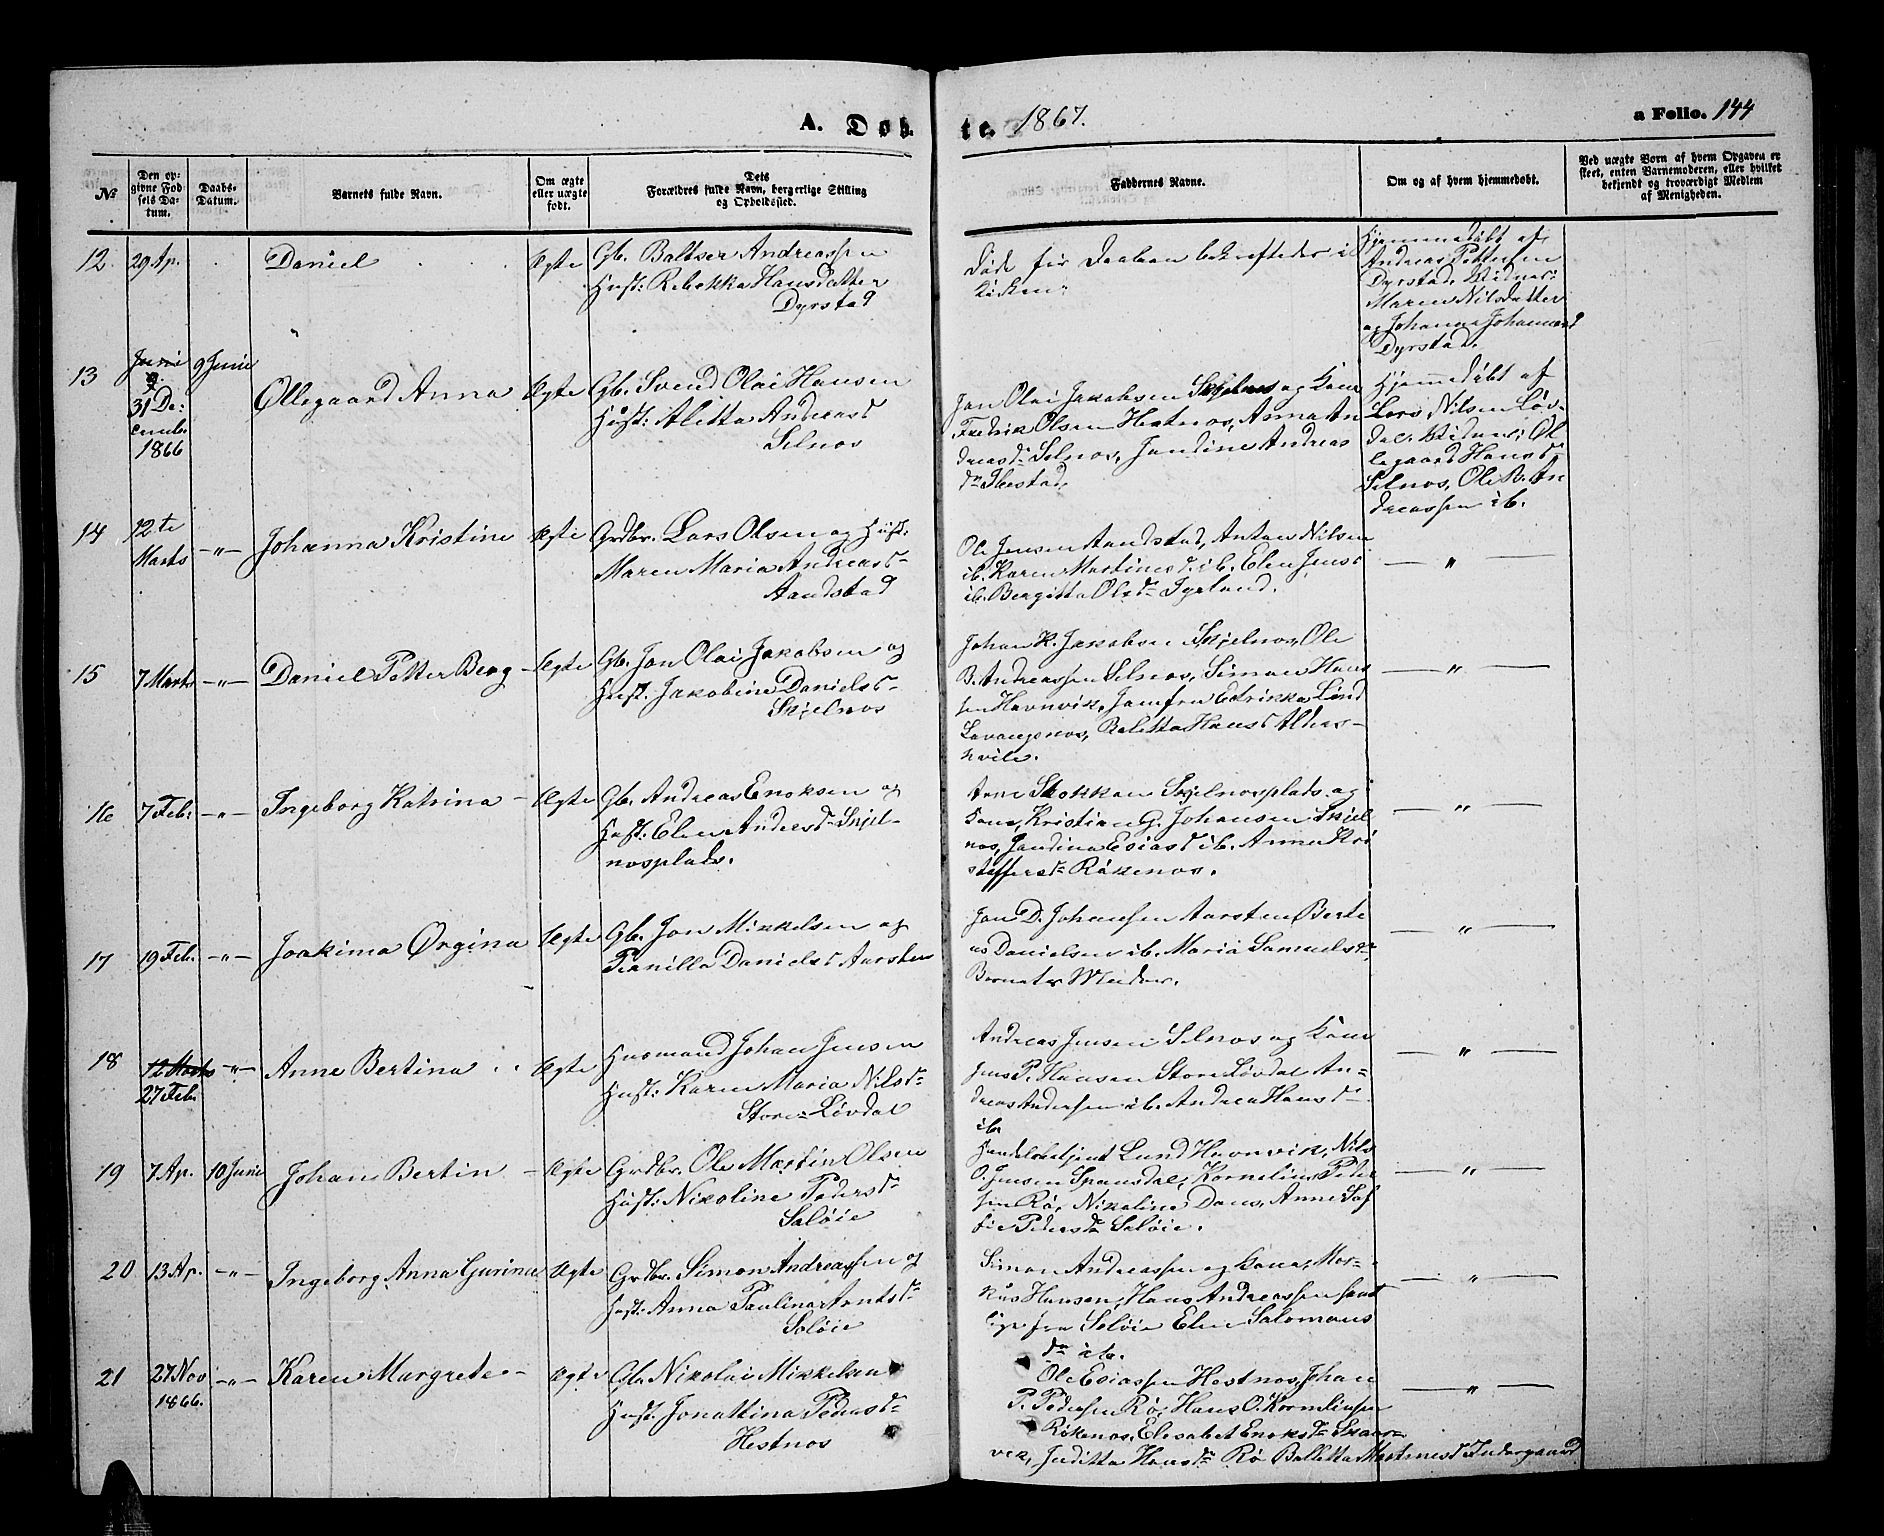 A. Døb-
te. 1867.
a Folio. 144
№
Den op-
givne Fød-
sels Da-
tum.
Daabs-
Datum.
Barnets fulde Navn.
Om ægte
eller uægte
født.
Dets
Forældres fulde Navn, borgerlige Stilling
og Opholdssted.
Faddernes Navne.
Om og af hvem hjemmedøbt.
Ved uægte Børn af hvem Opgaven er
skeet, enten Barnemoderen, eller hvilket
bekjendt og troværdigt Medlem
af Menigheden.
12. 29 Ap. Daniel Ægte Gb. Baltser Andreassen
Hust: Rebekka Hansdatter
Dyrstad
Døde før Daaben bekræftedes i
Kirken.
Hjemmedøbt af
Andreas Pettersen
Dyrstad, Vidner:
Maren Nilsdatter
og Johanna Johannesd
Dyrstad.
13 Juni 9 Junii
31 De-
cember
1866
Ollegaard Anna Ægte Gb. Svend Olai Hansen
Hust: Alitta Andreasd
Selnos
Jon Olai Jakobsen Skjelnos og Kone
Fredrik Olsen Hestnos, Anna An
dreasdr Selnos, Jandine Andreas
dr Ibestad.
Hjemmedøbt af
Lars Nilsen Løv-
dal. Vidner: Ol
legaard Hansd
Selnos, Ole B. An
dreassen ib.
14 12te
Marts —"— Johanna Kristine Ægte Grdbr. Lars Olsen og Hust:
Maren Maria Andreasd-
Aandstad
Ole Jensen Aandstad, Anton Nilsen
ib. Karen Martinesd. ib. Elen Jensd
ib. Bergitta Olsdr
— " —
15 7 Marts —"— Daniel Petter Berg Ægte Gb. Jon Olai Jakobsen og
Hust. Jakobine Danielsd-
Skjelnos
Johan K. Jakobsen Skjelnos, Ole
B. Andreassen Selnos, Simon Hans
sen Havnvik, Jomfru Edrikka Lind
Lavangsnos, Baletta Hansd Alders-
hvile.
— " —
16 7 Feb: —"— Ingeborg Katrina Ægte Gb. Andreas Enoksen og
Hust: Elen Andersdr Skjel-
nosplads.
Arne Stokkan Skjelnosplads og
Kone, Kristian G. Johansen Skjel
nos, Jandina Esiasd ib. Anna Kri
stoffersdr Røkenos.
— " —
17 19 Feb. —"— Joakima Ørgina Ægte Gb. Jon Mikkelsen og
Pernilla Danielsd Aarsten
Jon D. Johansen Aarsten Berte
us Danielsen ib. Maria Samuelsdr
— " —
18 12 Marts —"—
27 Feb.
Anne Bertina Ægte Husmand Johan Jensen
Hust: Karen Maria Nilsdr
Store-Løvdal
Andreas Jensen Selnos og Kone
Jens P. Hansen Store Løvdal An-
dreas Andersen ib. Andrea Hansdr
ib.
— " —
19 7 Ap. 10 Junii Johan Bertin Ægte Grdbr. Ole Martin Olsen
Hust: Nikoline Pedersdr
Saløie
Handelsbetjent Lund Havnvik, Nils
O. Jensen Spansdal, Kornelius Peder
sen Rø, Nikoline Dons, Anne Sof
fie Pedersdr Saløie.
— " —
20 13 Ap. —"— Ingeborg Anna Gurina Ægte Grdbr. Simon Andreassen og
Hust: Anna Paulina Arntsdr
Saløie
Simon Andreassen og Kona, Mar-
kus Hansen, Hans Andreassen samt
lige fra Saløie Elen Salomons
dr ib.
— " —
21 27 Nov
1866. —"— Karen Margrete Ægte Gb. Nikolai Mikkelsen
Hust. Jonettina Pedersd-
Hestnos
Ole Esiassen Hestnos, Johan
P. Pedersen Rø, Hans O. Korneliussen
Røkenos, Elisabet Enoksdr Skaar-
vik, Juditta Hansdr Rø Balletta Martinesd Indergaard
— " —